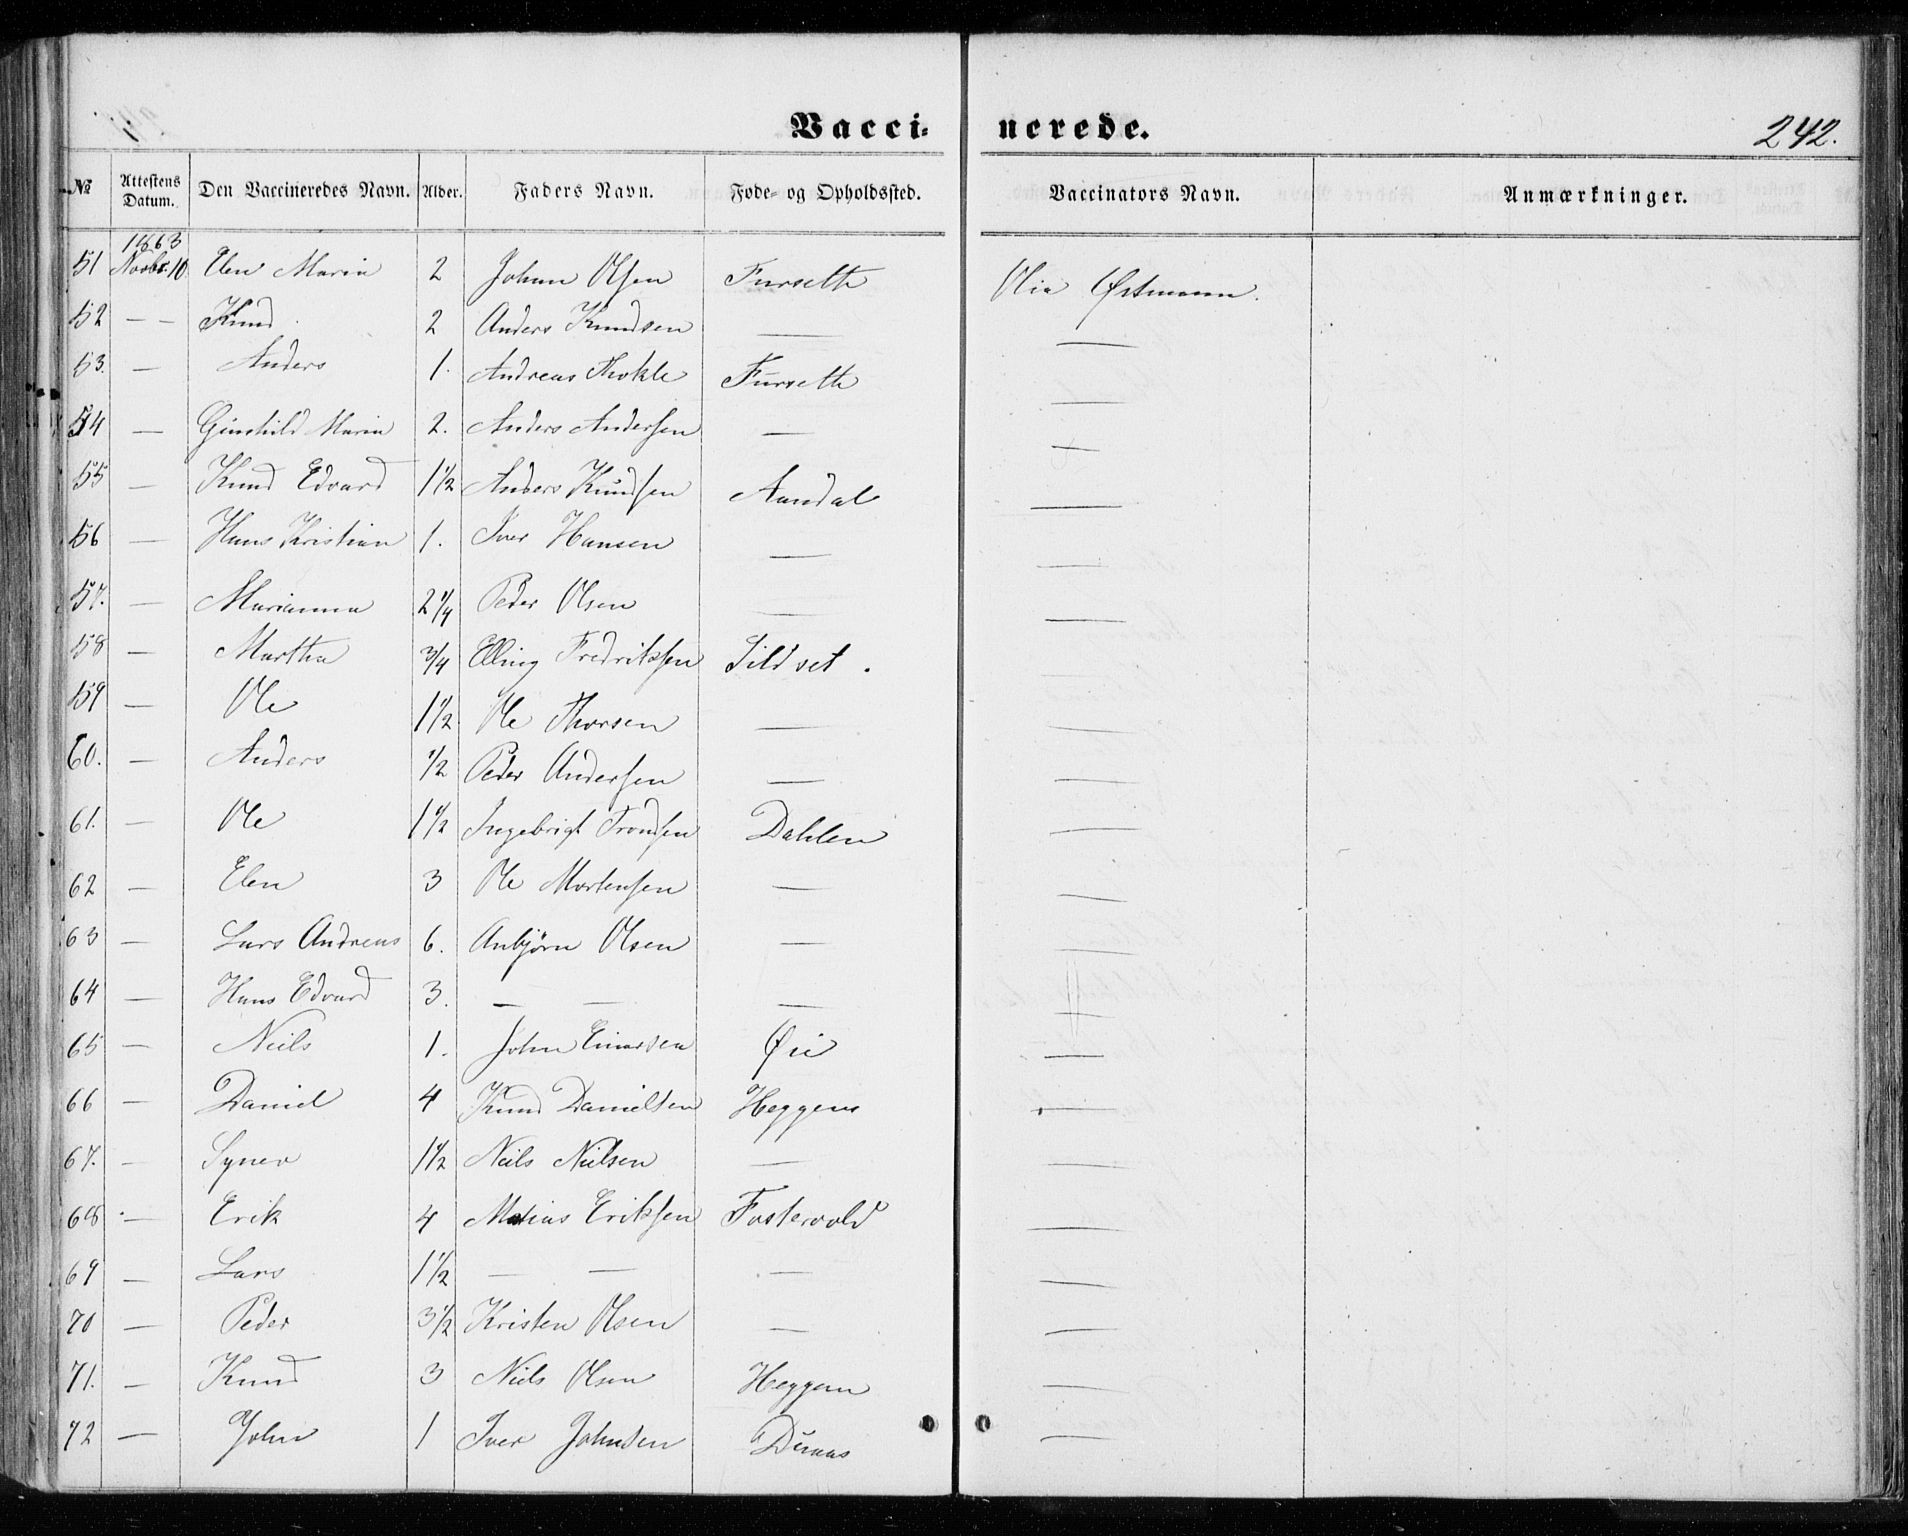 Vacci- nerede. 242.
№ Attestens Datum. Den Vaccineredes Navn. Alder. Faders Navn. Føde- og Opholdssted. Vaccinators Navn. Anmærkninger.
1863
51 Novbr. 10 Elen Maria 2 Johan Olsen Furseth Olia Østmann.
52 — — Knud 2 Anders Knudsen — —
53. — Anders 1. Andreas Thokle Furseth —
54 — Gunhild Maria 2. Anders Andersen — —
55 — Knud Edvard 1 1/2 Anders Knudsen Aandal —
56 — Hans Kristian 1. Iver Hansen — —
57. — Marianna 2 1/4 Peder Olsen — —
58 — Martha 3/4 Elling Fredriksen Sildset. —
59 — Ole 1 1/2 Ole Thorsen — —
60. — Anders 1/2 Peder Andersen — —
61. — Ole 1 1/2 Ingebrigt Trondsen Dahlen —
62 — Elen 3 Ole Mortensen — —
63 — Lars Andreas 6. Anbjørn Olsen — —
64 — Hans Edvard 3. — — — —
65 — Neils 1. John Einarsen Øie —
66 — Daniel 4 Knud Danielsen Heggem —
67. — Synev 1 1/2 Neils Nielsen — —
68 — Erik 4 Matias Eriksen Fostervold —
69 — Lars 1 1/2 — — — —
70 — Peder 3 1/2 Kristen Olsen — —
71. — Knud 3 Niels Olsen Heggem —
72 — John 1 Iver Johnsen Duaas —